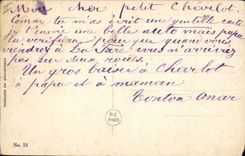 Mon cher petit Charlot.
Comme tu m'as écrit une gentille carte
je t'envoie une belle auto mais papa
la vérifiera pour que quand vous
viendrez à La Fare vous n'arriviez
pas sur deux roues.
Un gros baiser à Charlot
à papa et à maman
Tonton Omar
P.C
PARIS
No. 13